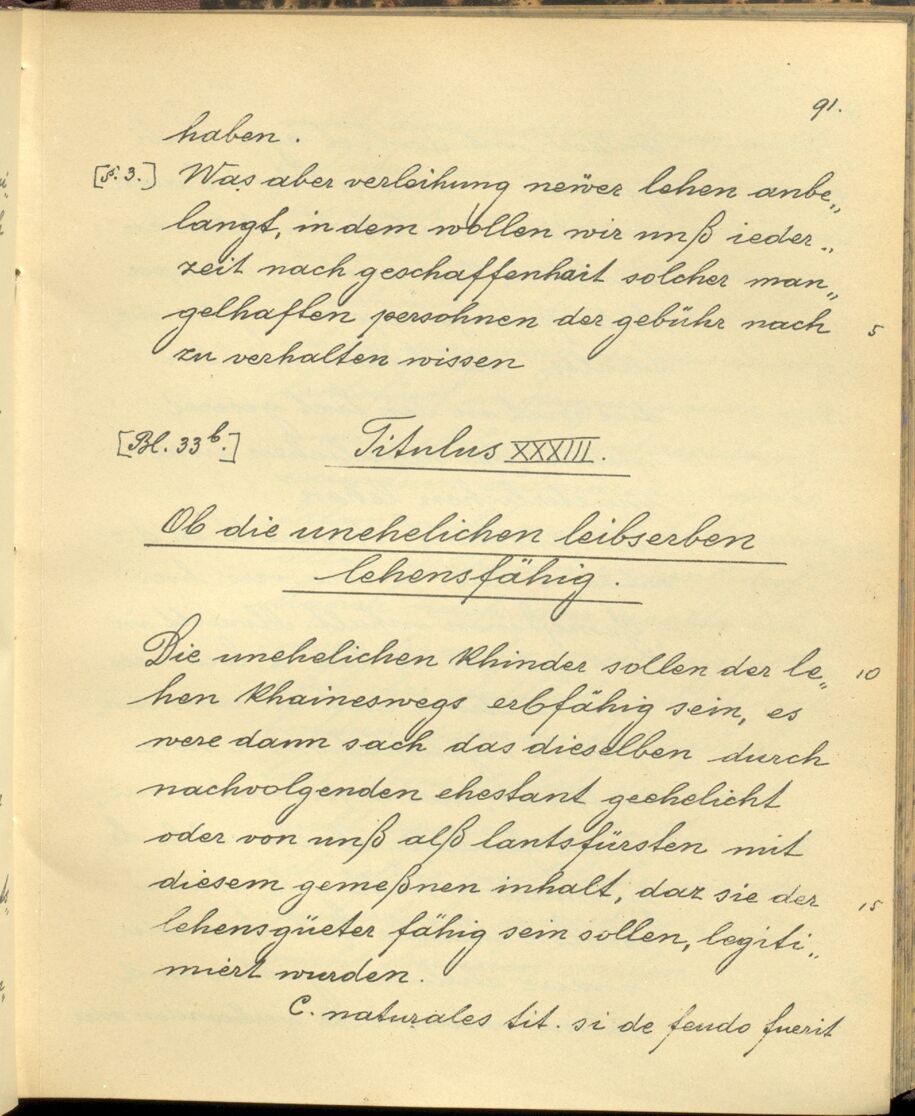 91.
haben.
[§. 3.] Was aber verleihung neẅer lehen anbe„
langt, in dem wollen wir unß ieder„
zeit nach geschaffenhait solcher man„
gelhaften persohnen der gebühr nach 5
zu verhalten wissen
[Bl. 33b.] Titulus XXXIII.
Ob die unehelichen leibserben
lehensfähig.
Die unehelichen khinder sollen der le„ 10
hen khaineswegs erbfähig sein, es
were dann sach das dieselben durch
nachvolgenden ehestant geehelicht
oder von unß alß lantsfürsten mit
diesem gemeßnen inhalt, daz sie der 15
lehensgüeter fähig sein sollen, legiti„
miert wurden.
C. naturales tit. si de feudo fuerit